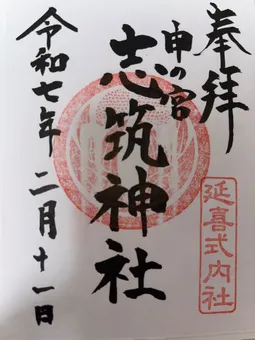 奉拝
延喜式内社
申の宮
志筑神社
令和七年二月十一日